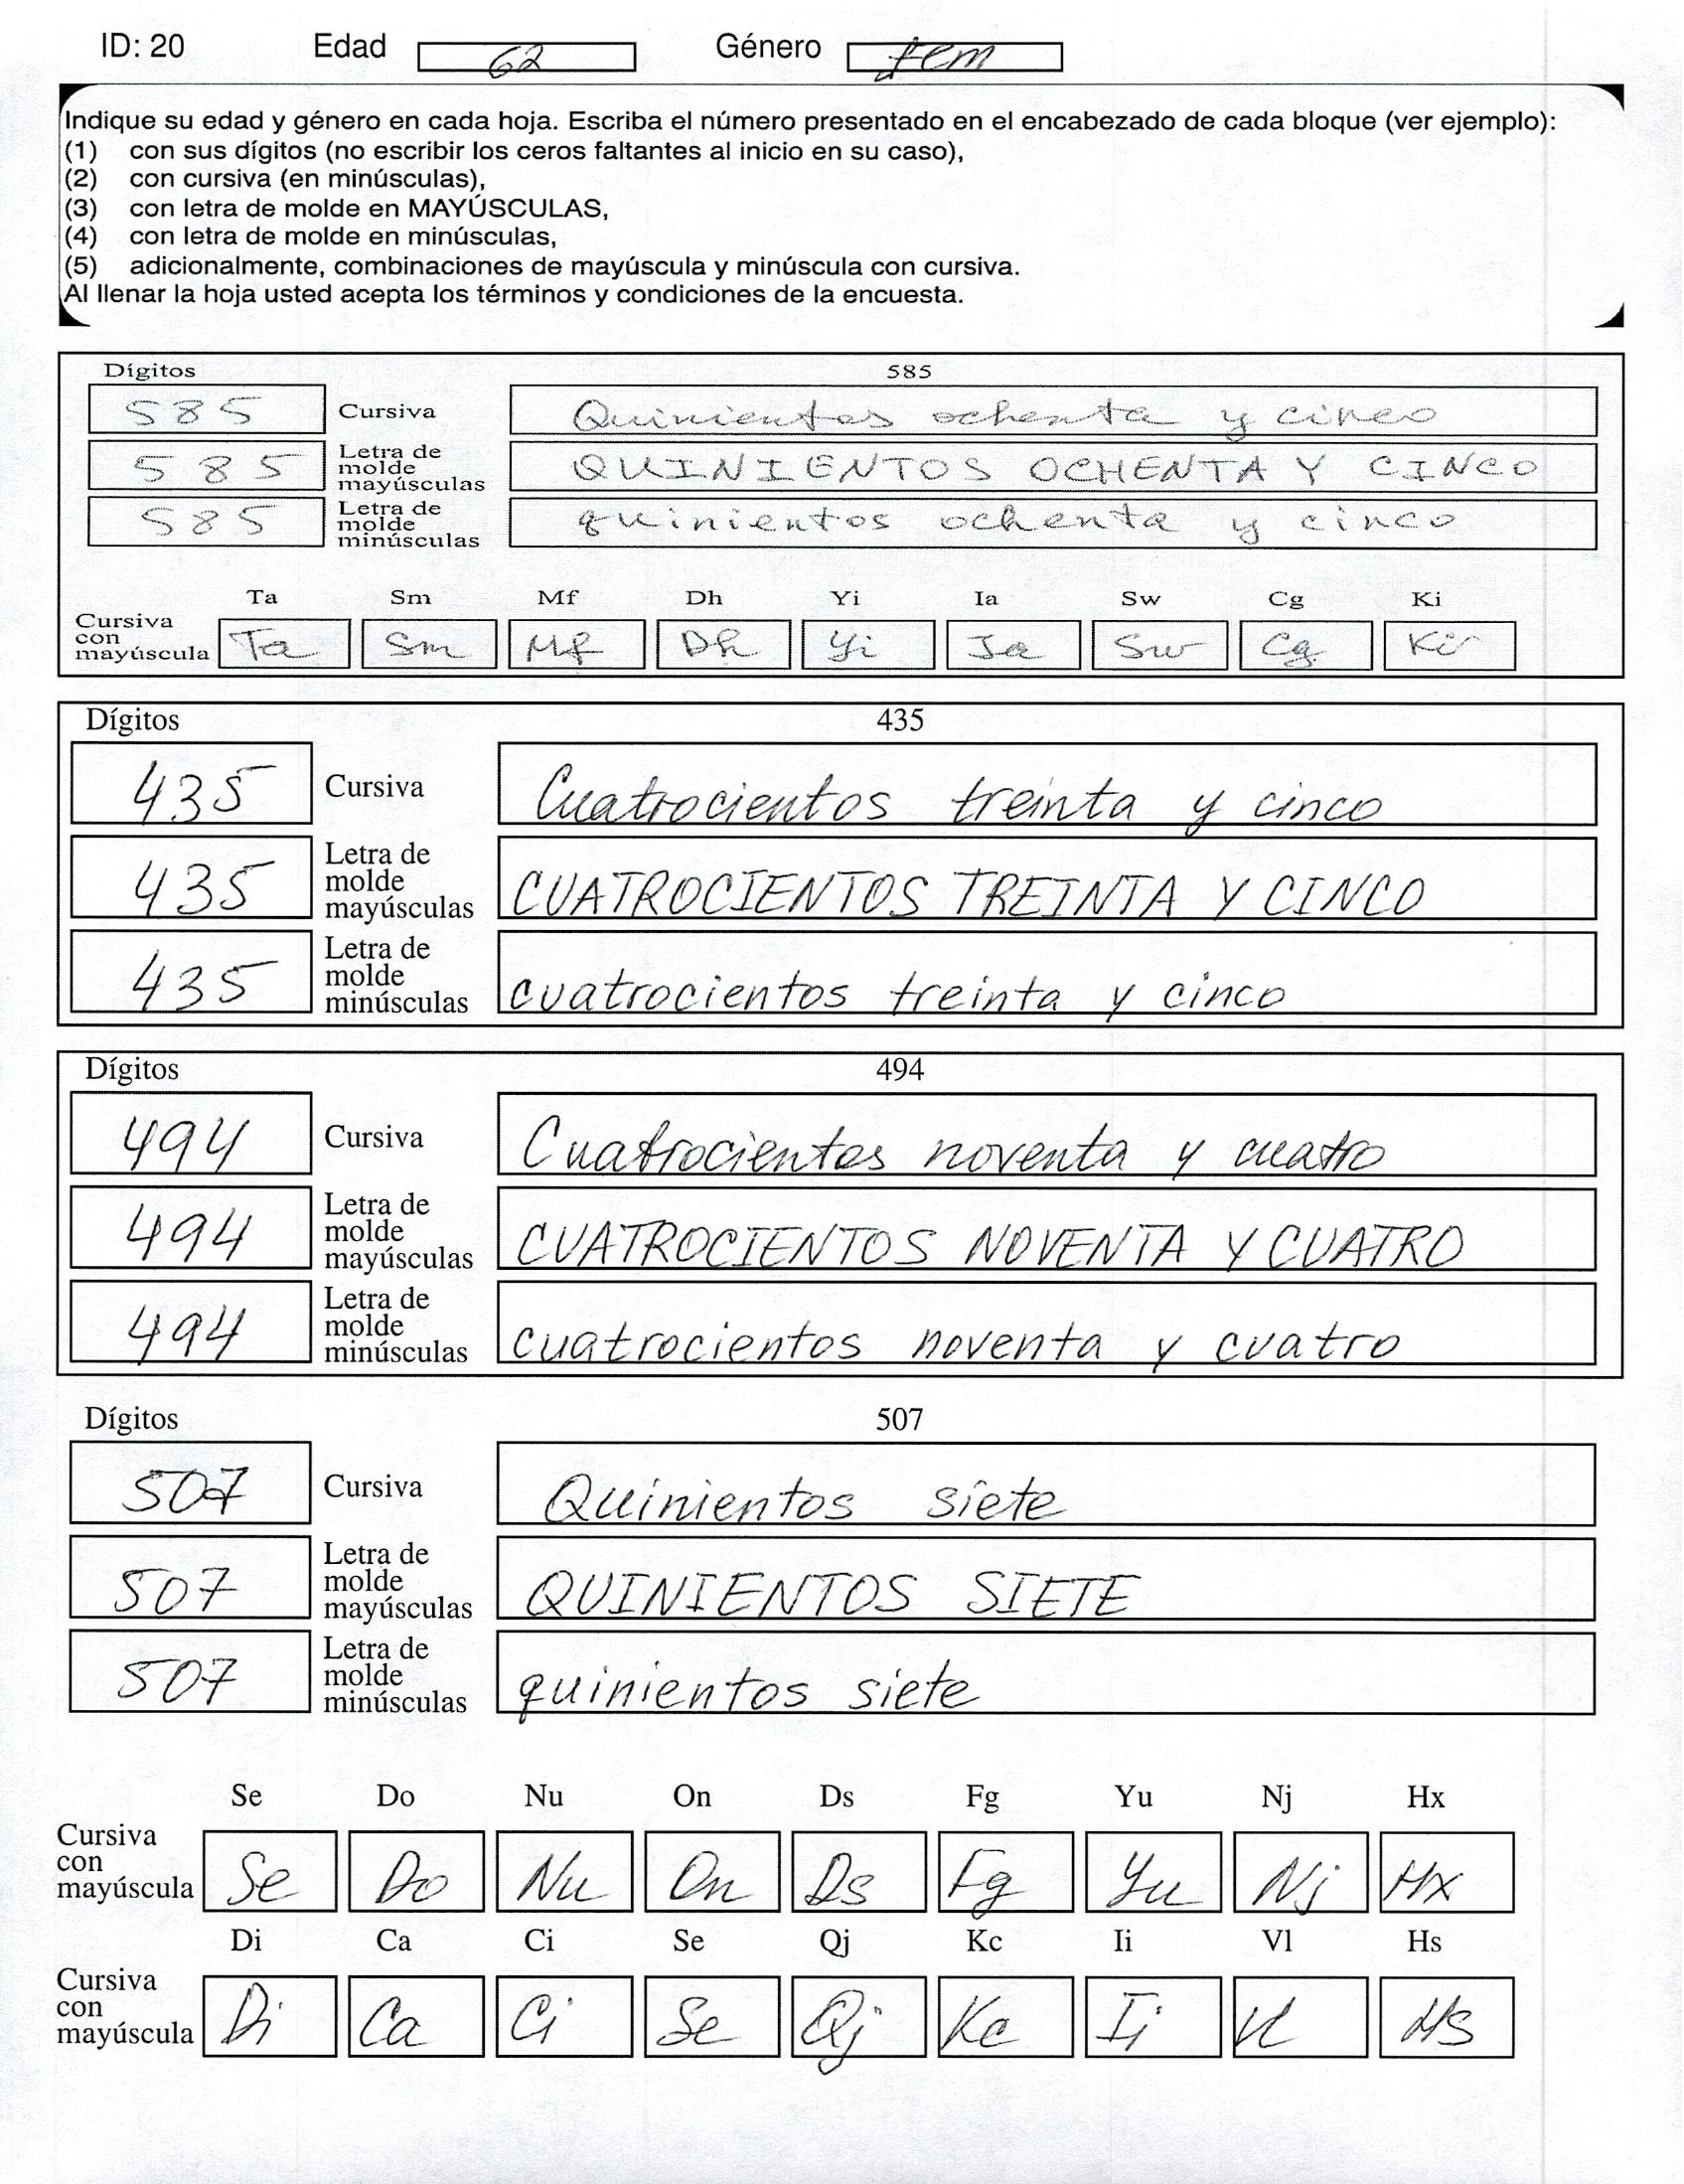 ID: 20 Edad 62 Género fem
Indique su edad y género en cada hoja. Escriba el número presentado en el encabezado de cada bloque (ver ejemplo):
(1) con sus dígitos (no escribir los ceros faltantes al inicio en su caso),
(2) con cursiva (en minúsculas),
(3) con letra de molde en MAYÚSCULAS,
(4) con letra de molde en minúsculas,
(5) adicionalmente, combinaciones de mayúscula y minúscula con cursiva.
Al llenar la hoja usted acepta los términos y condiciones de la encuesta.
Dígitos 585
585 Cursiva Quinientos ochenta y cinco
585 Letra de molde mayúsculas QUINIENTOS OCHENTA Y CINCO
585 Letra de molde minúsculas quinientos ochenta y cinco
Ta Sm Mf Dh Yi Ia Sw Cg Ki
Cursiva con mayúscula Ta Sm Mf Dh Yi Ia Sw Cg Ki
Dígitos 435
435 Cursiva Cuatrocientos treinta y cinco
435 Letra de molde mayúsculas CUATROCIENTOS TREINTA Y CINCO
435 Letra de molde minúsculas cuatrocientos treinta y cinco
Dígitos 494
494 Cursiva Cuatrocientos noventa y cuatro
494 Letra de molde mayúsculas CUATROCIENTOS NOVENTA Y CUATRO
494 Letra de molde minúsculas cuatrocientos noventa y cuatro
Dígitos 507
507 Cursiva Quinientos siete
507 Letra de molde mayúsculas QUINIENTOS SIETE
507 Letra de molde minúsculas quinientos siete
Se Do Nu On Ds Fg Yu Nj Hx
Cursiva con mayúscula Se Do Nu On Ds Fg Yu Nj Hx
Di Ca Ci Se Qj Kc Ii Vl Hs
Cursiva con mayúscula Di Ca Ci Se Qj Kc Ii Vl Hs